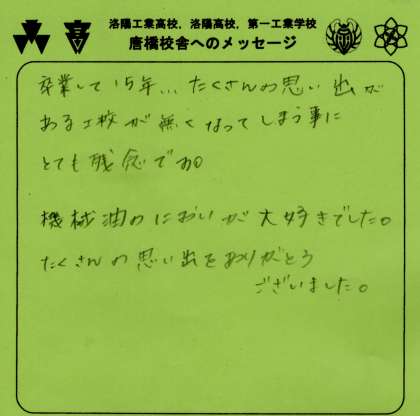 洛陽工業高校，洛陽高校，第一工業学校
唐橋校舎へのメッセージ
卒業して15年... たくさんの思い出が
ある工校が無くなってしまう事に
とても残念です。
機械油のにおいが大好きでした。
たくさんの思い出をありがとう
ございました。